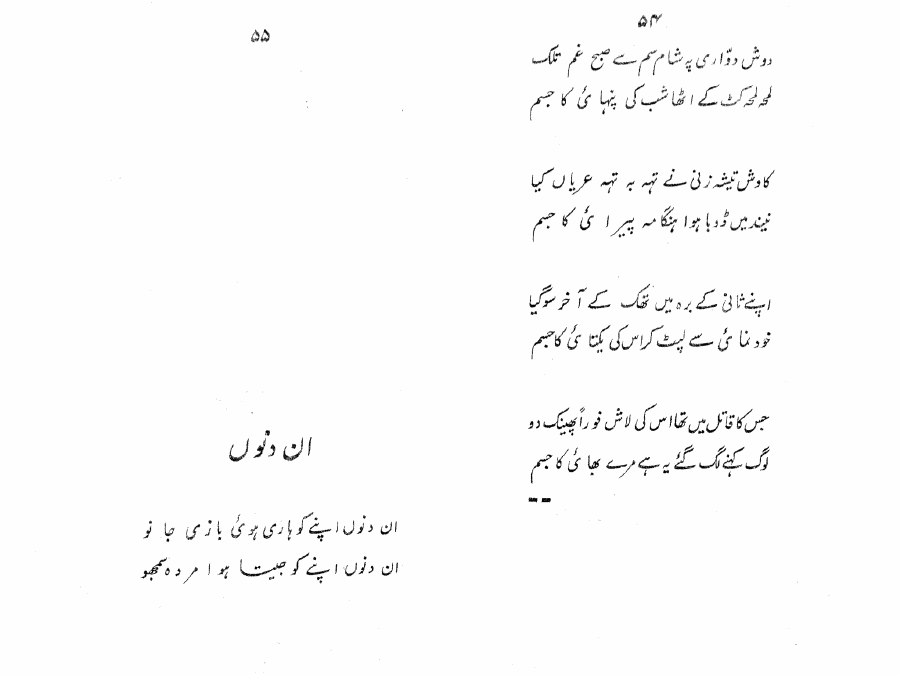 ۵۴
دوش دوّاری پہ شام سم سے صبح غم تلک
لمحہ لمحہ کٹ کے اٹھا شب کی پنہائ کا جسم
کاوش تیشہ زنی نے تہہ بہ تہہ عریاں کیا
نیند میں ڈوبا ہوا ہنگامہ پیرائ کا جسم
اپنے ثانی کے برہ میں تھک کے آخر سوگیا
خود نمائ سے لپٹ کر اس کی یکتائ کا جسم
جس کا قاتل میں تھا اس کی لاش فوراً پھینک دو
لوگ کہنے لگ گئے یہ ہے مرے بھائ کا جسم
۵۵
ان دنوں
ان دنوں اپنے کو ہاری ہوئ بازی جانو
ان دنوں اپنے کو جیتا ہوا مردہ سمجھو